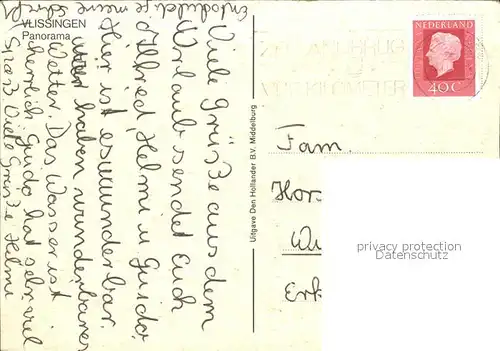 VLISSINGEN
Panorama
Entschuldige meine Schrift
Viele Grüße aus dem
Urlaub sendet Euch
Alfred, Helmi u Guido.
Hier ist es wunderbar.
haben wunderbares
Wetter. Das Wasser ist
herrlich Guido hat sehr viel
Spaß. Viele Grüße Helmi
Uitgave Den Hollander B.V. Middelburg
NEDERLAND
40 C
BRUG
VOOR KILOMETER
Fam.
Hor
Wu
Erk
privacy protection
Datenschutz